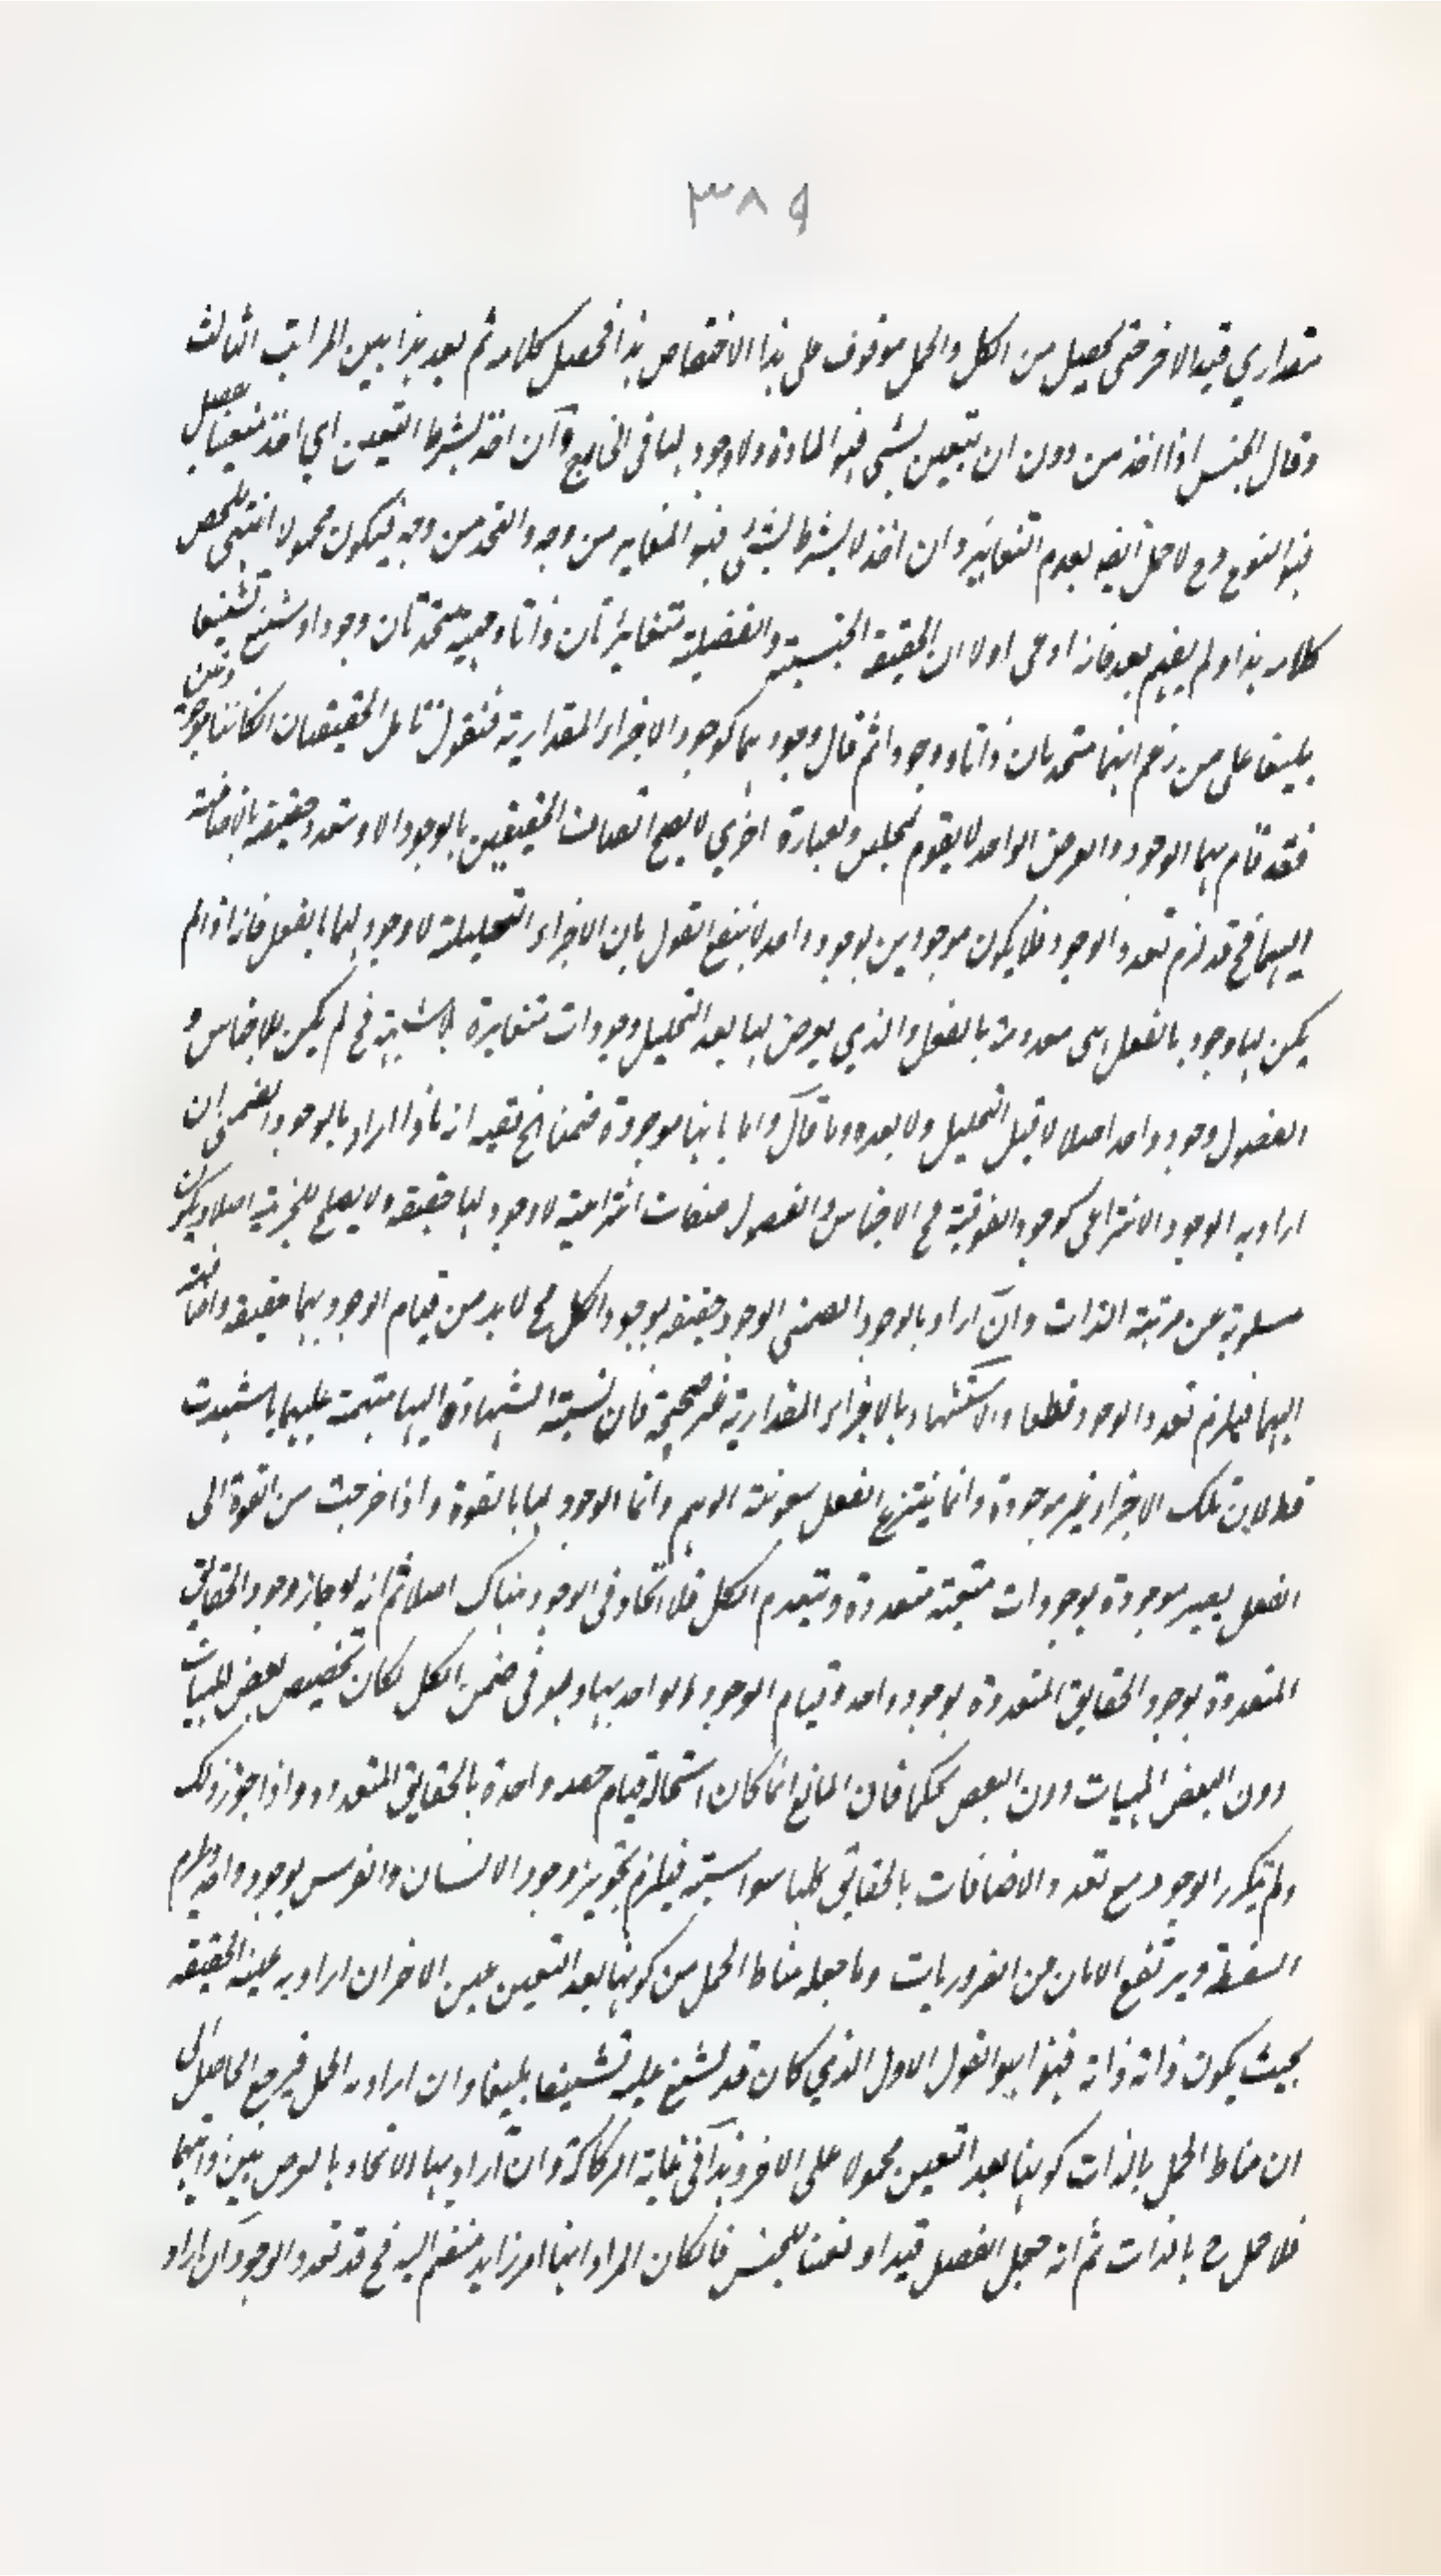 ٣٨٩
مقداري قيد الاخر حتى يحصل من الكل والحمل موقوف على هذا الاختصاص هذا محصل كلامه ثم بعد هذا بين المراتب الثالث
وقال الجنس اذا اخذ من دون ان يتعين بشئ فهو المادة ولا وجود لها فى الخارج وان اخذ بشرط التعين اي اخذ متعينا بفصل
فهو النوع وح لا حمل ايضه لعدم التغاير وان اخذ لا بشرط شئ فهو المغاير من وجه والمتحد من وجه فيكون محمولا انتهى ملخص
كلامه هذا ولم يفهم بعد فانه ادعى اولا ان الحقيقة الجنسية والفصلية متغايرتان ذاتا ومهية متحدتان وجودا وشنع تشنيعا
بليغا على من زعم انهما متحدتان ذاتا ووجودا ثم قال وجودهما كوجود الاجزاء المقدارية فنقول تانك الحقيقتان اكانتا موجودتين
فقد قام بهما الوجود والعرض الواحد لا يقوم بمحلين وبعبارة اخرى لا يصح اتصاف الحقيقتين بالوجود الا وتتعدد حقيقته بالاضافة
اليهما فح قد لزم تعدد الوجود فلا يكون موجودين بوجود واحد لا ينفع القول بان الاجزاء التحليلية لا وجود لها بالفعل فانه اذا لم
يكن لها وجود بالفعل فهى معدومة بالفعل والذي يعرض لها بعد التحليل وجودات متغايرة بلا شبهة فح لم يكن للاجناس و
الفصول وجود واحد اصلا لا قبل التحليل ولا بعده وما قال وانما بانها موجودة ضمنا فح نقيه انه ماذا اراد بالوجود الضمنى ان
اراد به الوجود الانتزاعى كوجود الفوقية فح الاجناس والفصول صفات انتزاعية لا وجود لها حقيقة ولا يصلح للجزئية اصلا ويكون
مسلوبة عن مرتبة الذات وان اراد بالوجود الضمنى الوجود حقيقة بوجود الكل فح لا بد من قيام الوجود بهما حقيقة واضافته
اليهما فيلزم تعدد الوجود قطعا والاستشهاد بالاجزاء المقدارية غير صحيحة فان نسبة الشهادة اليها متهمة عليها ما شهدت
قط لان تلك الاجزاء غير موجودة وانما ينتزع الفعل بمعونة الوهم وانما الوجود لها بالقوة واذا خرجت من القوة الى
الفعل يصير موجودة بوجودات متعددة وينعدم الكل فلا اتحاد فى الوجود هناك اصلا ثم انه لو جاز وجود الحقايق
المتعددة بوجود الحقايق المتعددة بوجود واحد وقيام الوجود الواحد بها ولو فى ضمن الكل لكان تخصيص بعض المهيات
دون البعض المهيات دون البعض تحكما فان المانع انما كان استحالة قيام حصة واحدة بالحقايق المتعددة واذا جوز ذلك
ولم يتكرر الوجود مع تعدد الاضافات بالحقايق كلها سواسية فيلزم تجويز وجود الانسان والفرس بوجود واحد ويلزم
السفسطة ويرتفع الامان من الضروريات وما جعله مناط الحمل من كونها بعد التعين عين الاخر ان اراد به عينه الحقيقة
بحيث يكون ذاته ذاته فهذا هو القول الاول الذي كان قد شنع عليه تشنيعا بليغا وان اراد به الحمل فيرجع الحاصل الى
ان مناط الحمل بالذات كونها بعد التعين محمولا على الاخر وهذا فى غاية الركاكة وان اراد بها الاتحاد بالعرض بين ذاتيهما
فلا حمل ح بالذات ثم انه جعل الفصل قيدا ونعتا للجنس فان كان المراد انها امر زايد منضم اليه فح قد تعدد الوجود وان اراد